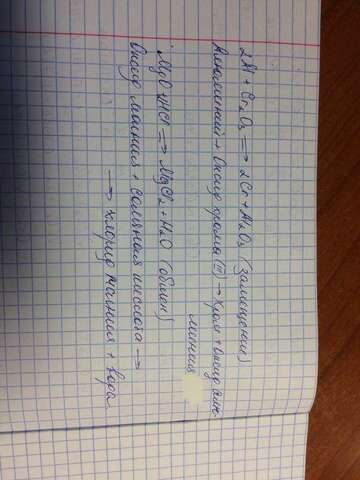 2Al + Cr₂O₃ ⟹ 2Cr + Al₂O₃ (замещение)
Алюминий + Оксид хрома (II) → хром + оксид алю-
миния
MgO + HCl ⟹ MgCl₂ + H₂O (обмен)
Оксид магния + Соляная кислота →
→ хлорид магния + вода